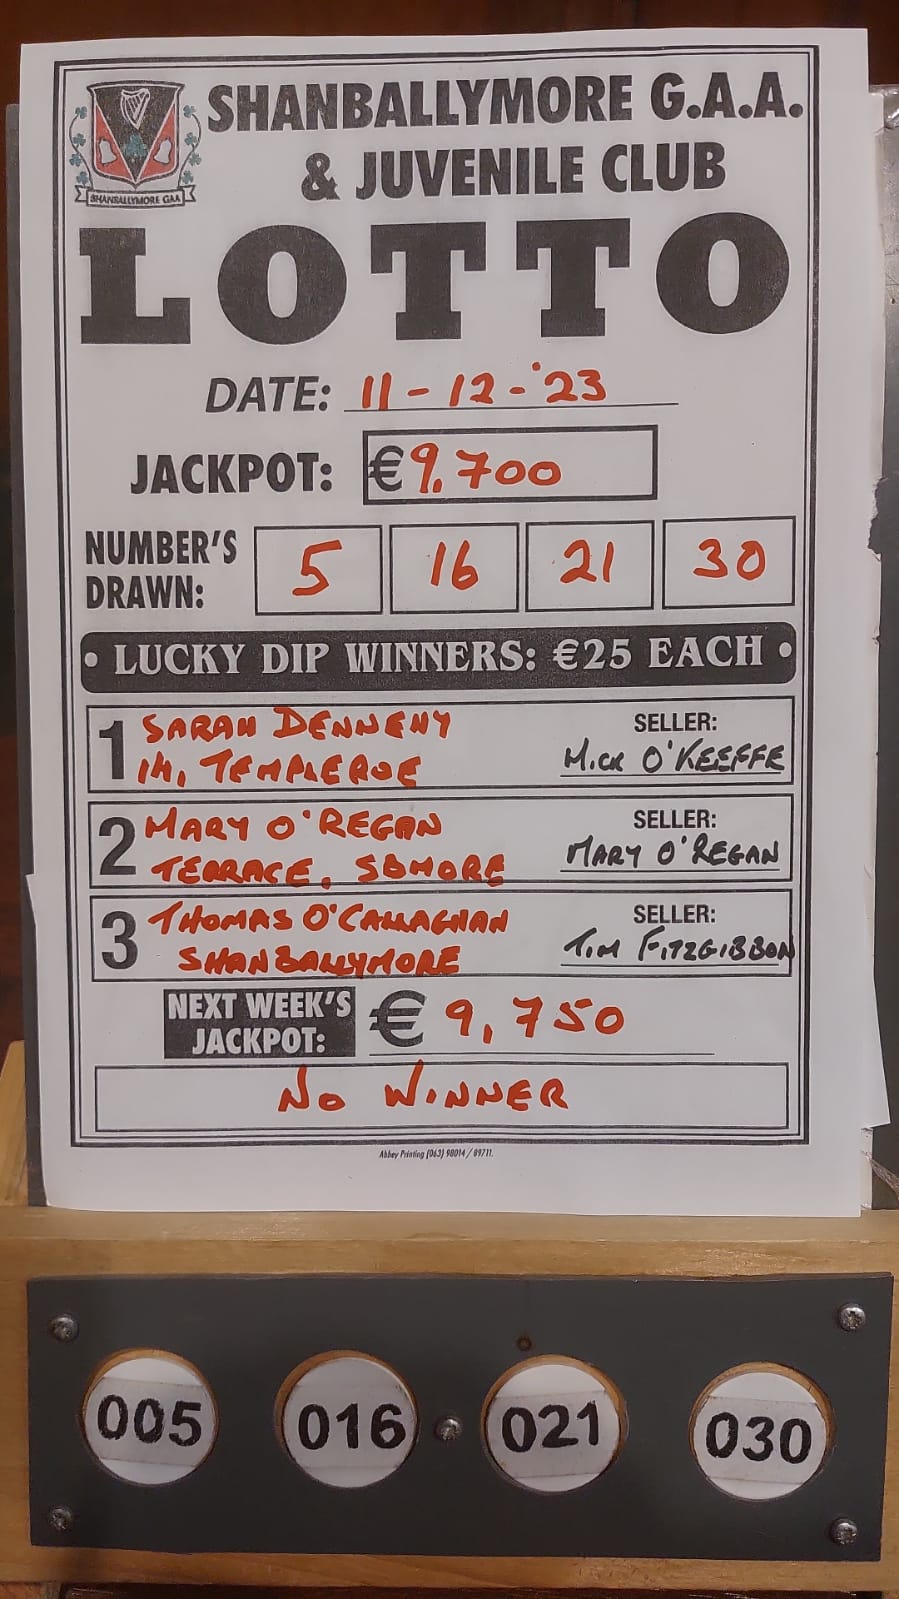 SHANBALLYMORE G.A.A.
& JUVENILE CLUB
SHANBALLYMORE GAA
LOTTO
DATE: 11-12-'23
JACKPOT: €9,700
NUMBER'S
DRAWN: 5 16 21 30
• LUCKY DIP WINNERS: €25 EACH •
1 SARAH DENNEHY
14, TEMPLEROE
SELLER:
MICK O'KEEFFE
2 MARY O'REGAN
TERRACE, SBMORE
SELLER:
MARY O'REGAN
3 THOMAS O'CALLAGHAN
SHANBALLYMORE
SELLER:
TIM FITZGIBBON
NEXT WEEK'S
JACKPOT: € 9,750
NO WINNER
Abbey Printing (063) 98014 / 89711.
005 016 021 030